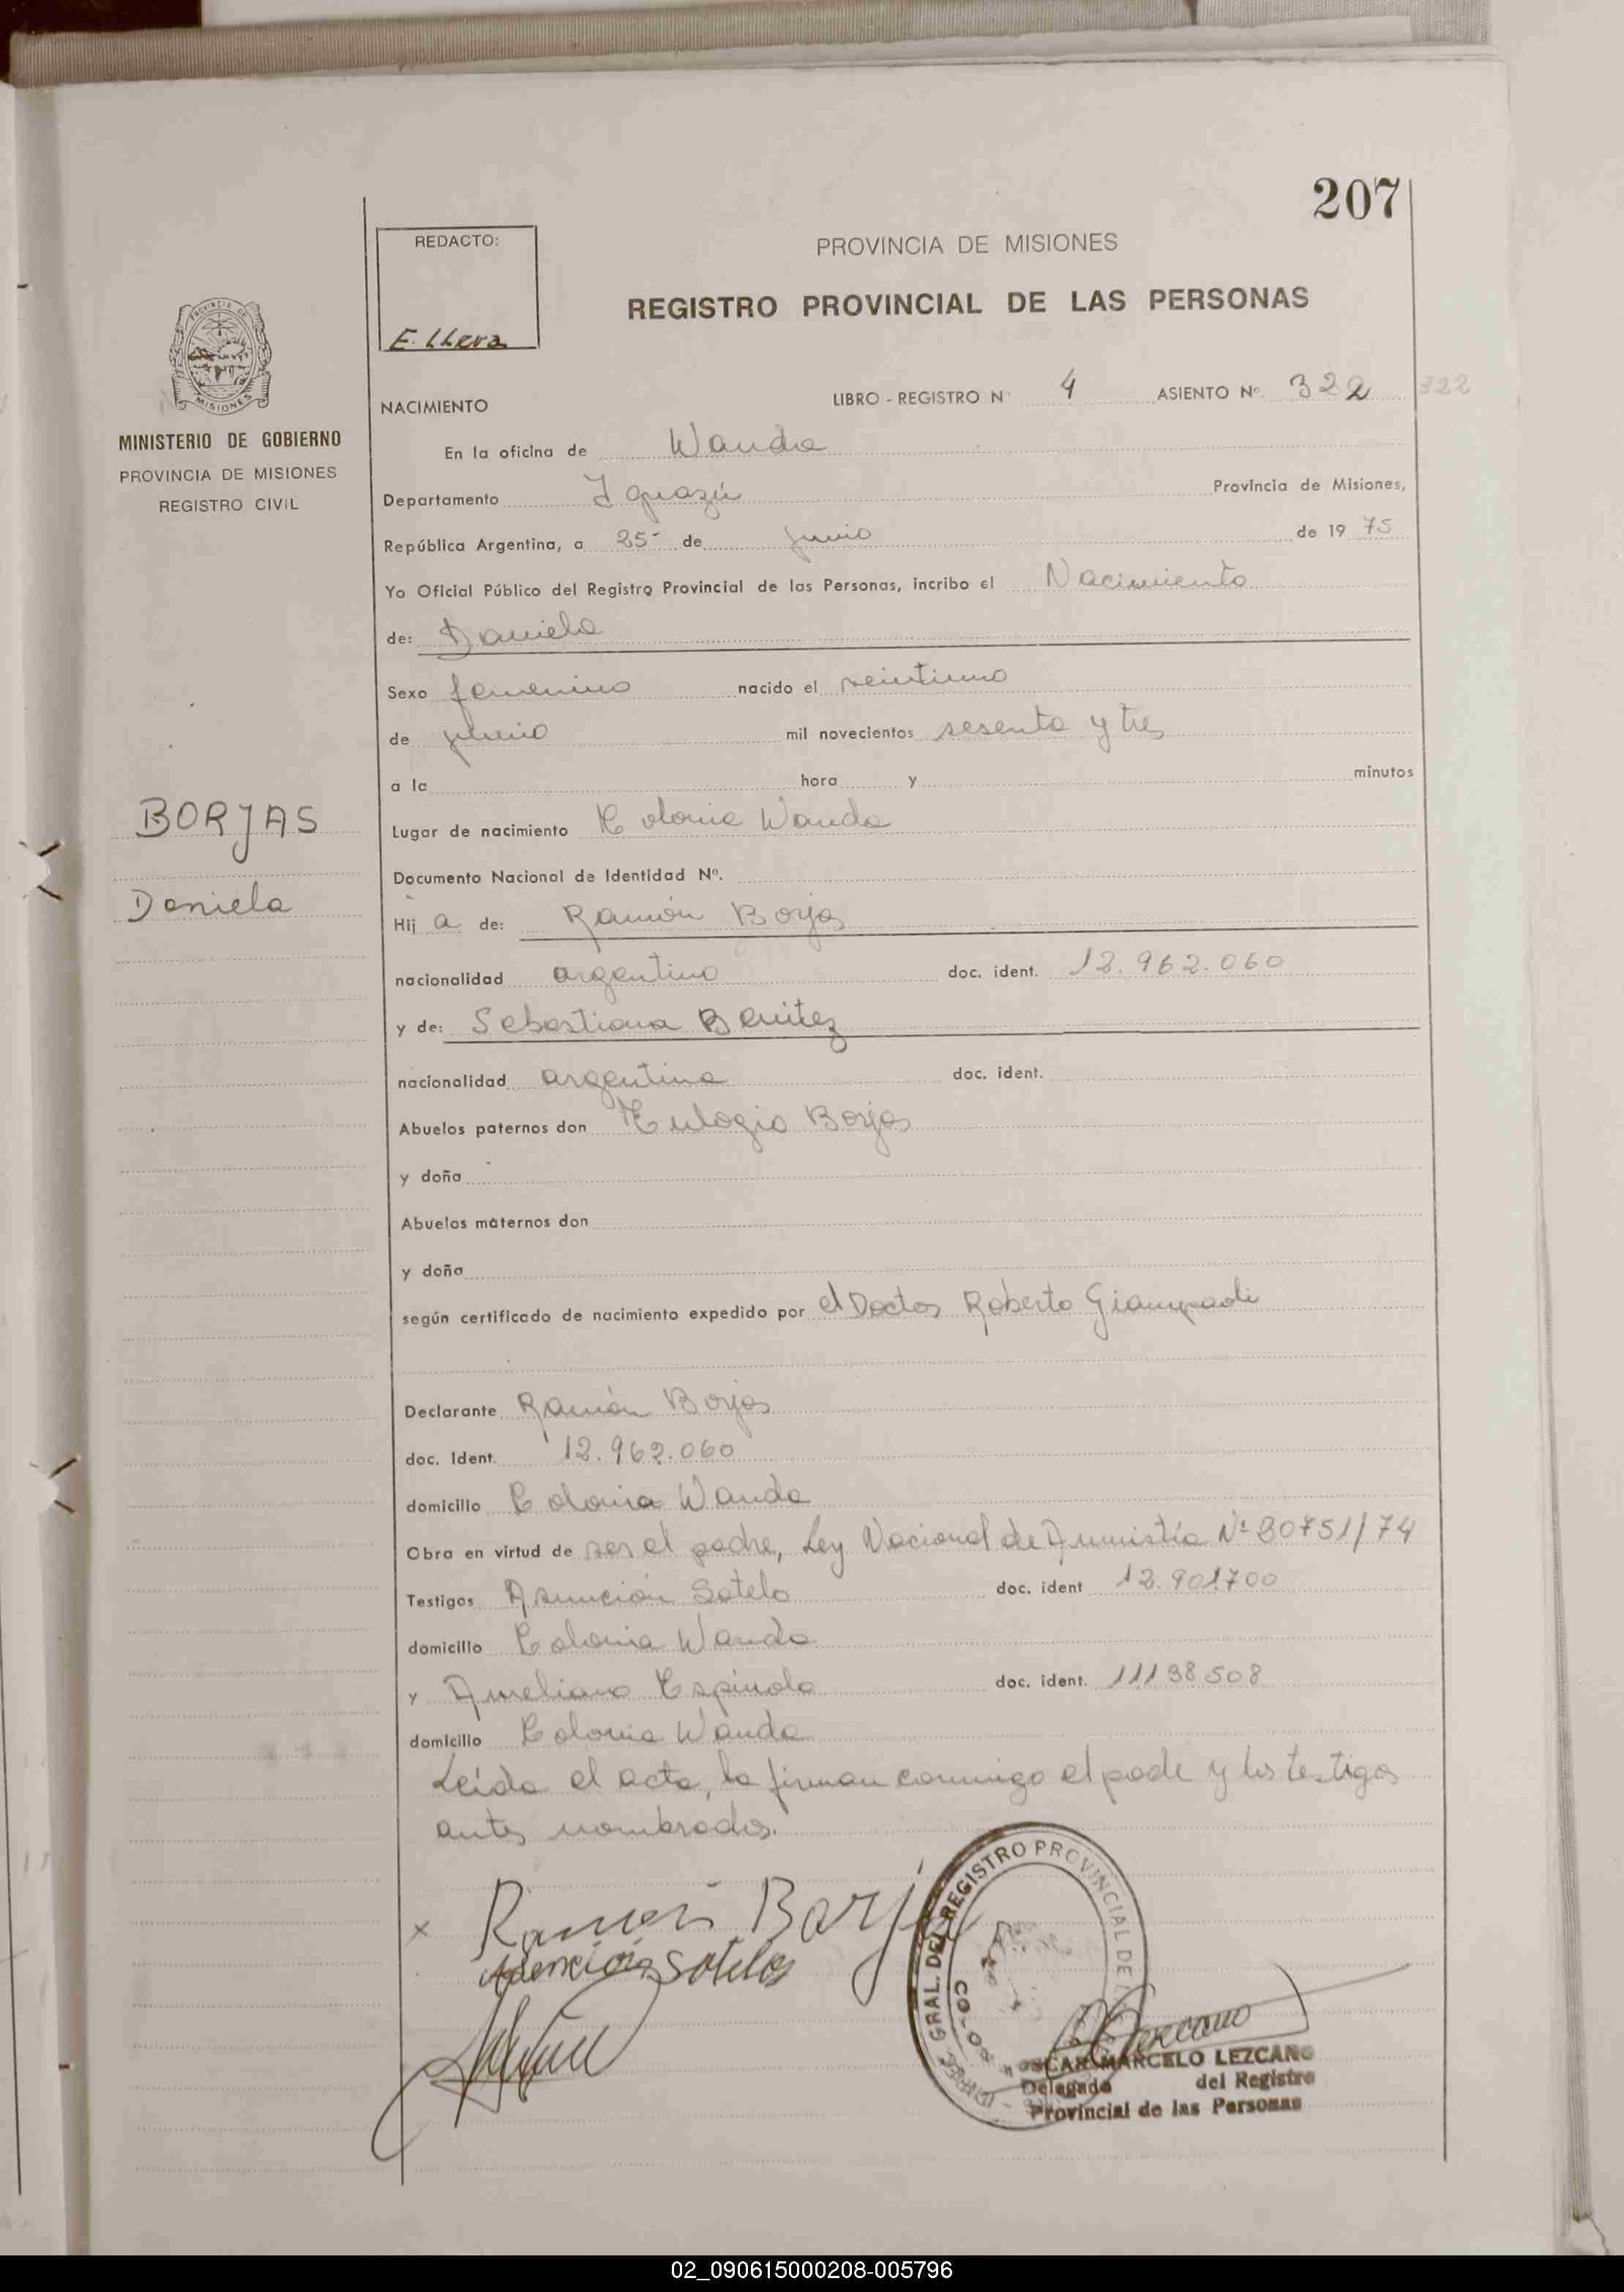 207
REDACTO:
E. LLera
PROVINCIA DE MISIONES
REGISTRO PROVINCIAL DE LAS PERSONAS
MISIONES
MINISTERIO DE GOBIERNO
PROVINCIA DE MISIONES
REGISTRO CIVIL
NACIMIENTO LIBRO - REGISTRO Nº 4 ASIENTO Nº. 322 322
En la oficina de Wanda
Departamento Iguazú Provincia de Misiones,
República Argentina, a 25- de junio de 19 75
Yo Oficial Público del Registro Provincial de las Personas, incribo el Nacimiento
de: Daniela
Sexo femenino nacido el veintiuno
de junio mil novecientos sesenta y tres
a la hora y minutos
BORJAS
Daniela
Lugar de nacimiento Colonia Wanda
Documento Nacional de Identidad Nº.
Hij a de: Ramón Borjas
nacionalidad argentino doc. ident. 12.962.060
y de: Sebastiana Benitez
nacionalidad argentina doc. ident.
Abuelos paternos don Eulogio Borjas
y doña
Abuelos maternos don
y doña
según certificado de nacimiento expedido por el Doctor Roberto
Declarante Ramón Borjas
doc. Ident. 12.962.060
domicilio Colonia Wanda
Obra en virtud de ser el padre, Ley Nacional de Amnistía Nº 20751/74
Testigos Asunción Sotelo doc. ident 12.901700
domicilio Colonia Wanda
y Aureliano Espinola doc. ident. 11138508
domicilio Colonia Wanda
Leída el acta, la firman conmigo el padre y los testigos
antes nombrados.
x Ramón Borja
Asención Sotelo
GRAL. DEL REGISTRO PROVINCIAL DE
OSCAR MARCELO LEZCANO
Delegado del Registro
Provincial de las Personas
02_090615000208-005796